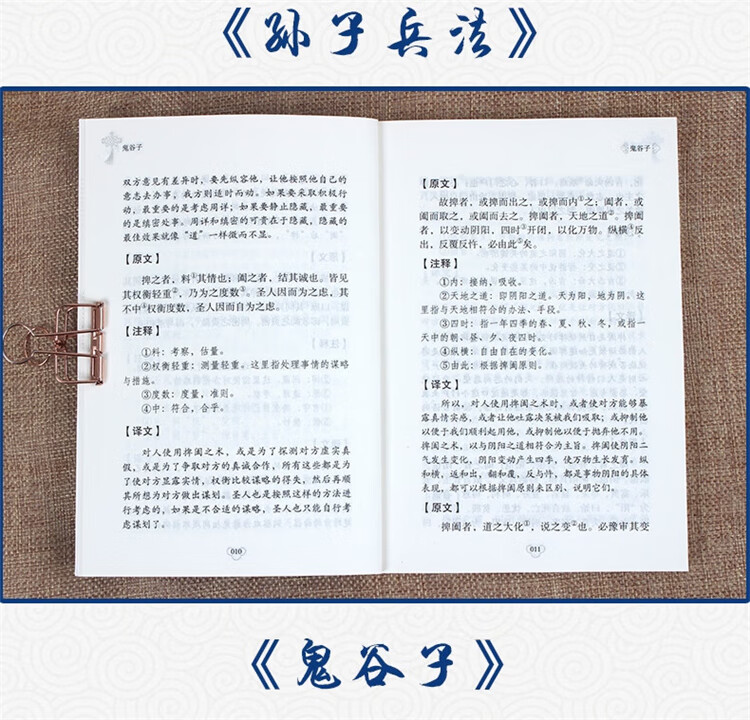 《孙子兵法》
鬼谷子
双方意见有差异时，要先纵容他，让他按照他自己的
意志去办事，我方则适时而动。如果要采取积极行
动，最重要的是考虑周详；如果要静止隐藏，最重要
的是缜密处事。周详和缜密的可贵在于隐藏，隐藏的
最佳效果就像“道”一样微而不显。
【原文】
捭之者，料①其情也；阖之者，结其诚也。皆见
其权衡轻重②，乃为之度数③。圣人因而为之虑，其
不中④权衡度数，圣人因而自为之虑。
【注释】
①料：考察，估量。
②权衡轻重：测量轻重。这里指处理事情的谋略
与措施。
③度数：度量，准则。
④中：符合，合乎。
【译文】
对人使用捭阖之术，或是为了探测对方虚实真
假，或是为了争取对方的真诚合作，所有这些都是为
了使对方显露实情，权衡比较谋略的得失，然后再顺
其所想为对方做出谋划。圣人也是按照这样的方法进
行考虑的，如果是不合适的谋略，圣人也只能自行考
虑谋划了。
010
鬼谷子
【原文】
故捭者，或捭而出之，或捭而内①之；阖者，或
阖而取之，或阖而去之。捭阖者，天地之道②。捭阖
者，以变动阴阳，四时③开闭，以化万物。纵横④反
出，反覆反忤，必由此⑤矣。
【注释】
①内：接纳，吸收。
②天地之道：即阴阳之道。天为阳，地为阴。这
里指与天地相符合的办法、手段。
③四时：指一年四季的春、夏、秋、冬，或指一
天中的朝、昼、夕、夜四时。
④纵横：自由自在的变化。
⑤由此：根据捭阖原则。
【译文】
所以，对人使用捭阖之术时，或者使对方能够暴
露真情实感，或者让他吐露决策被我们吸取；或抑制他
以便于我们顺利起用他，或抑制他以便于抛弃他不用。
捭阖之术，以与阴阳之道相符合为主旨。捭阖使阴阳二
气发生变化，阴阳变动产生四季，使万物生长发育。纵
和横，返和出，翻和覆，反与忤，都是事物阴阳的具体
表现，都可以根据捭阖原则来区别、说明它们。
【原文】
捭阖者，道之大化①，说之变②也。必豫审其变
011
《鬼谷子》